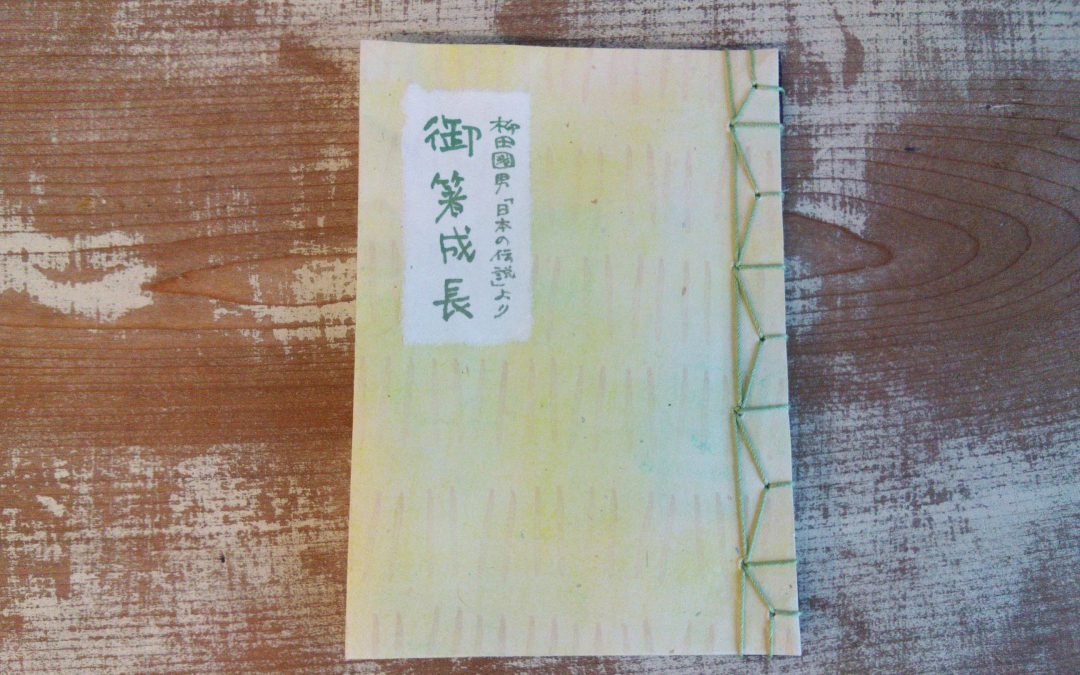 柳田國男「日本の伝説」より
御箸成長